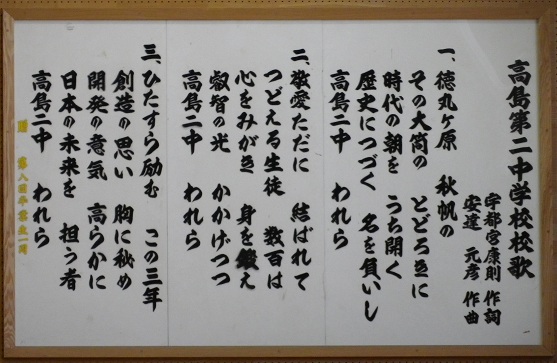 高島第二中学校校歌
宇都宮康則 作詞
安達 元彦 作曲
一、徳丸ヶ原 秋帆の
その大筒の とどろきに
時代の朝を うち開く
歴史につづく 名を負いし
高島二中 われら
二、敬愛ただに 結ばれて
つどえる生徒 数百は
心をみがき 身を鍛え
叡智の光 かかげつつ
高島二中 われら
三、ひたすら励む この三年
創造の思い 胸に秘め
開発の意気 高らかに
日本の未来を 担う者
高島二中 われら
贈 第八回卒業生一同